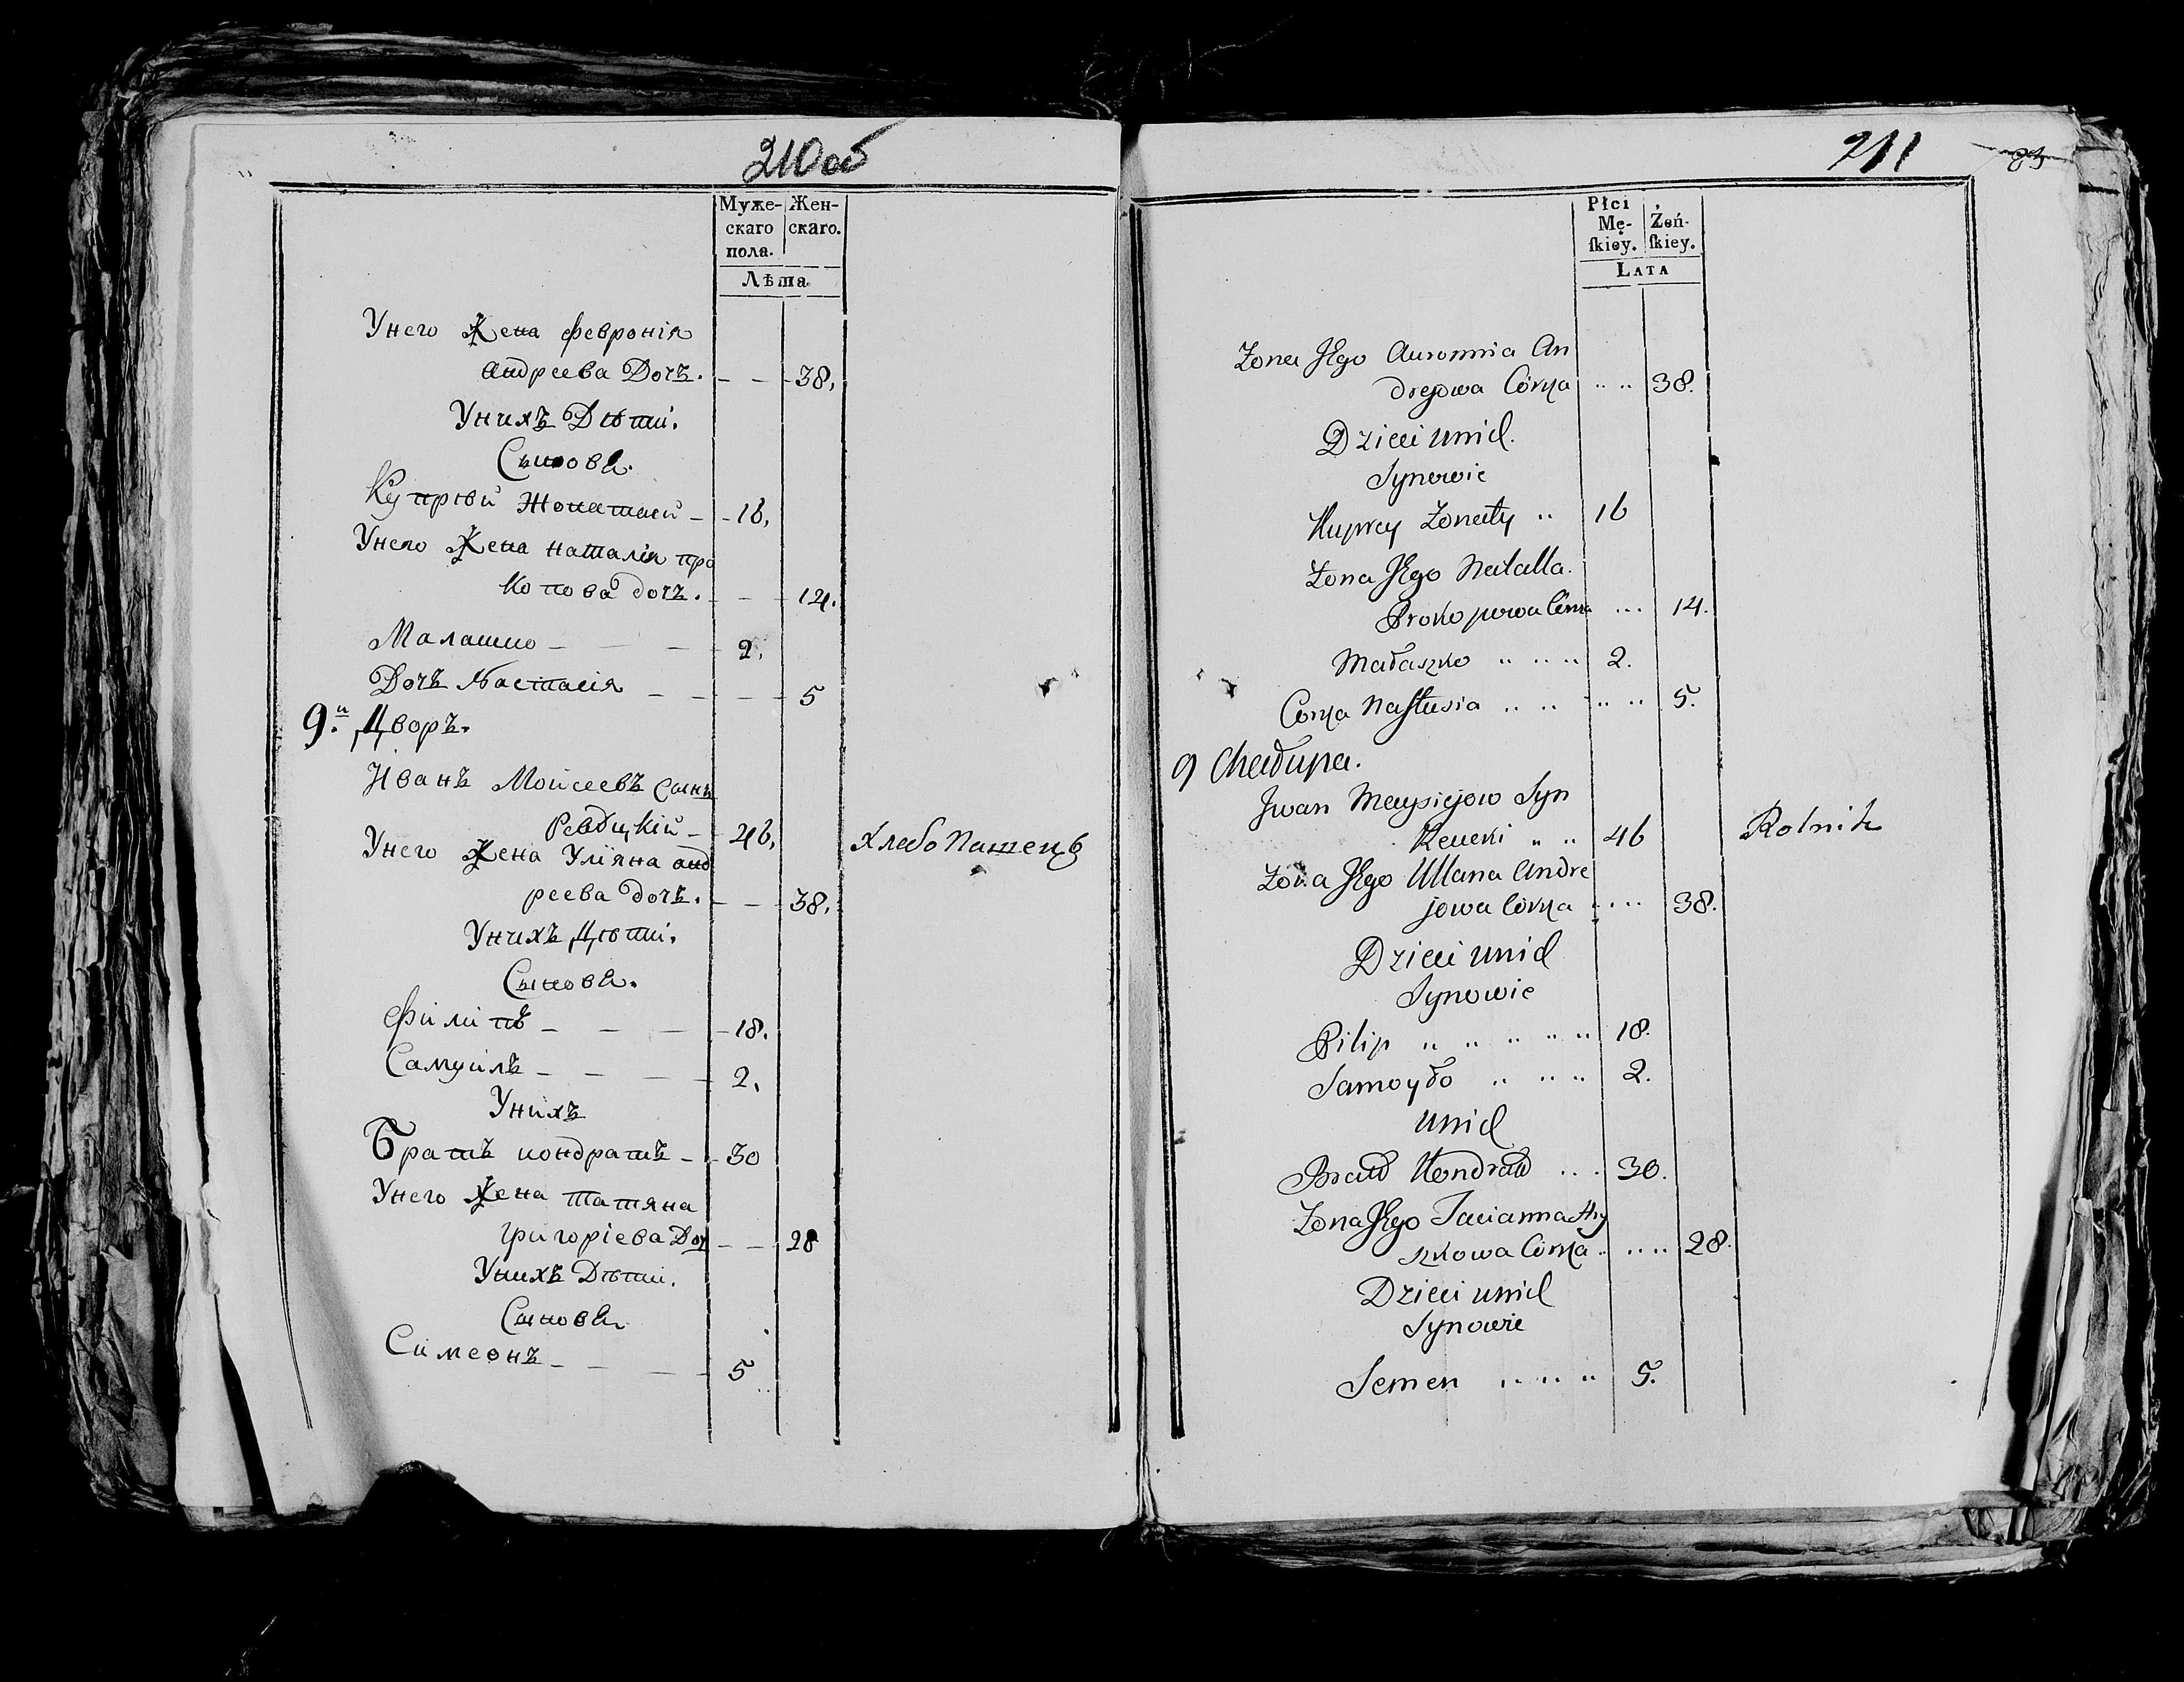 210 об
Муже-
скаго
пола.
Жен-
скаго.
Лѣта.
Унего Жена Февронія
Андреева Дочъ. 38.
Унихъ Дѣти.
Сынове.
Купрѣй Жонатый 16.
Унего Жена Наталія Про
копова дочъ. 14.
Малашко 2.
Дочъ Настасія 5
9.й Дворъ.
Иванъ Мойсеевъ сынъ
46. Хлебопашецъ
Унего Жена Уліяна Анд
реева дочъ. 38.
Унихъ Дѣти.
Сынове.
Филипъ 18.
Самуилъ 2.
Унихъ
Братъ Кондратъ 30
Унего Жена Татяна
Григоріева Доч 28
Унихъ Дѣти.
Сынове
Симеонъ 5
211
Płci
Mę-
ſkiey.
Żeń-
ſkiey.
Lata
Żona Jego An
drejowa Córka 38.
Dzieci unich.
Synowie
Kuprey Żonaty 16
Żona Jego Natalla.
Prokopowa Córka 14.
Małaszko 2.
Corka Nastusia 5.
9 Chałupa.
Jwan Maysiejow Syn
46 Rolnik
Żona Jego Ullana Andre
jowa Córka 38.
Dzieci unich
Synowie
Pilip 18.
Samoyło 2.
unich
Brat Kondrat 30.
Żona Jego Tacianna Hry
szkowa Córka 28.
Dzieci unich
Synowie
Semen 5.